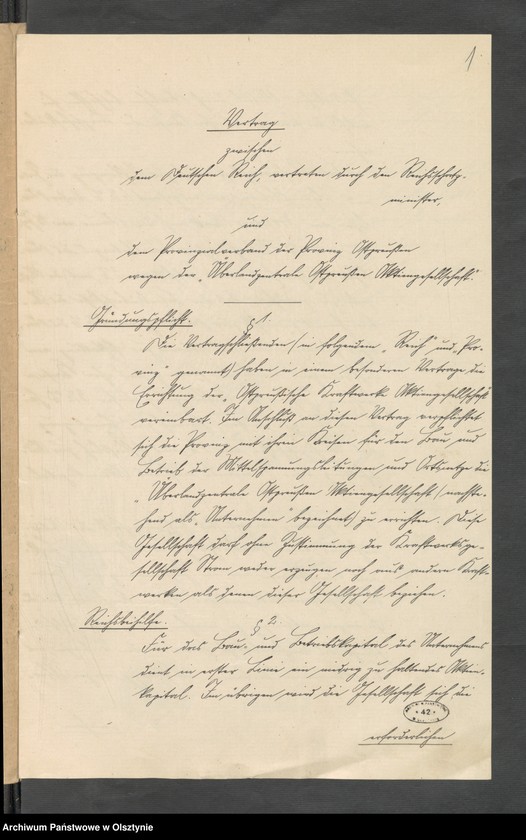 1
Vertrag
zwischen
dem Deutschen Reich, vertreten durch den Reichsschatz-
minister,
und
dem Provinzialverband der Provinz Ostpreußen
wegen der „Überlandzentrale Ostpreußen Aktiengesellschaft“.
Gründungspflicht.
§ 1.
Die Vertragschließenden (in folgendem „Reich“ und „Pro-
vinz“ genannt) haben in einem besonderen Vertrage die
Errichtung der „Ostpreußische Kraftwerke Aktiengesellschaft“
vereinbart. Im Anschluß an diesen Vertrag verpflichtet
sich die Provinz mit ihren Kreisen für den Bau und
Betrieb der Mittelspannungsleitungen und Ortsnetze die
„Überlandzentrale Ostpreußen Aktiengesellschaft (nachste-
hend als „Unternehmen“ bezeichnet) zu errichten. Diese
Gesellschaft darf ohne Zustimmung der Kraftwerksge-
sellschaft Strom weder erzeugen noch aus andern Kraft-
werken als denen dieser Gesellschaft beziehen.
Reichsbeihilfe.
§ 2.
Für das Bau- und Betriebskapital des Unternehmens
dient in erster Linie ein niedrig zu haltendes Aktien-
kapital. Im übrigen wird die Gesellschaft sich die
42
erforderlichen
Archiwum Państwowe w Olsztynie